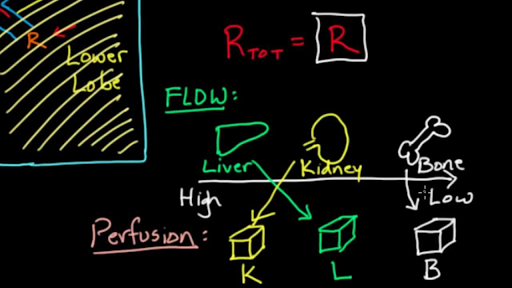 R
Lower
Lobe
R TOT = R
FLOW:
Liver
Kidney
Bone
High
Low
Perfusion:
K
L
B